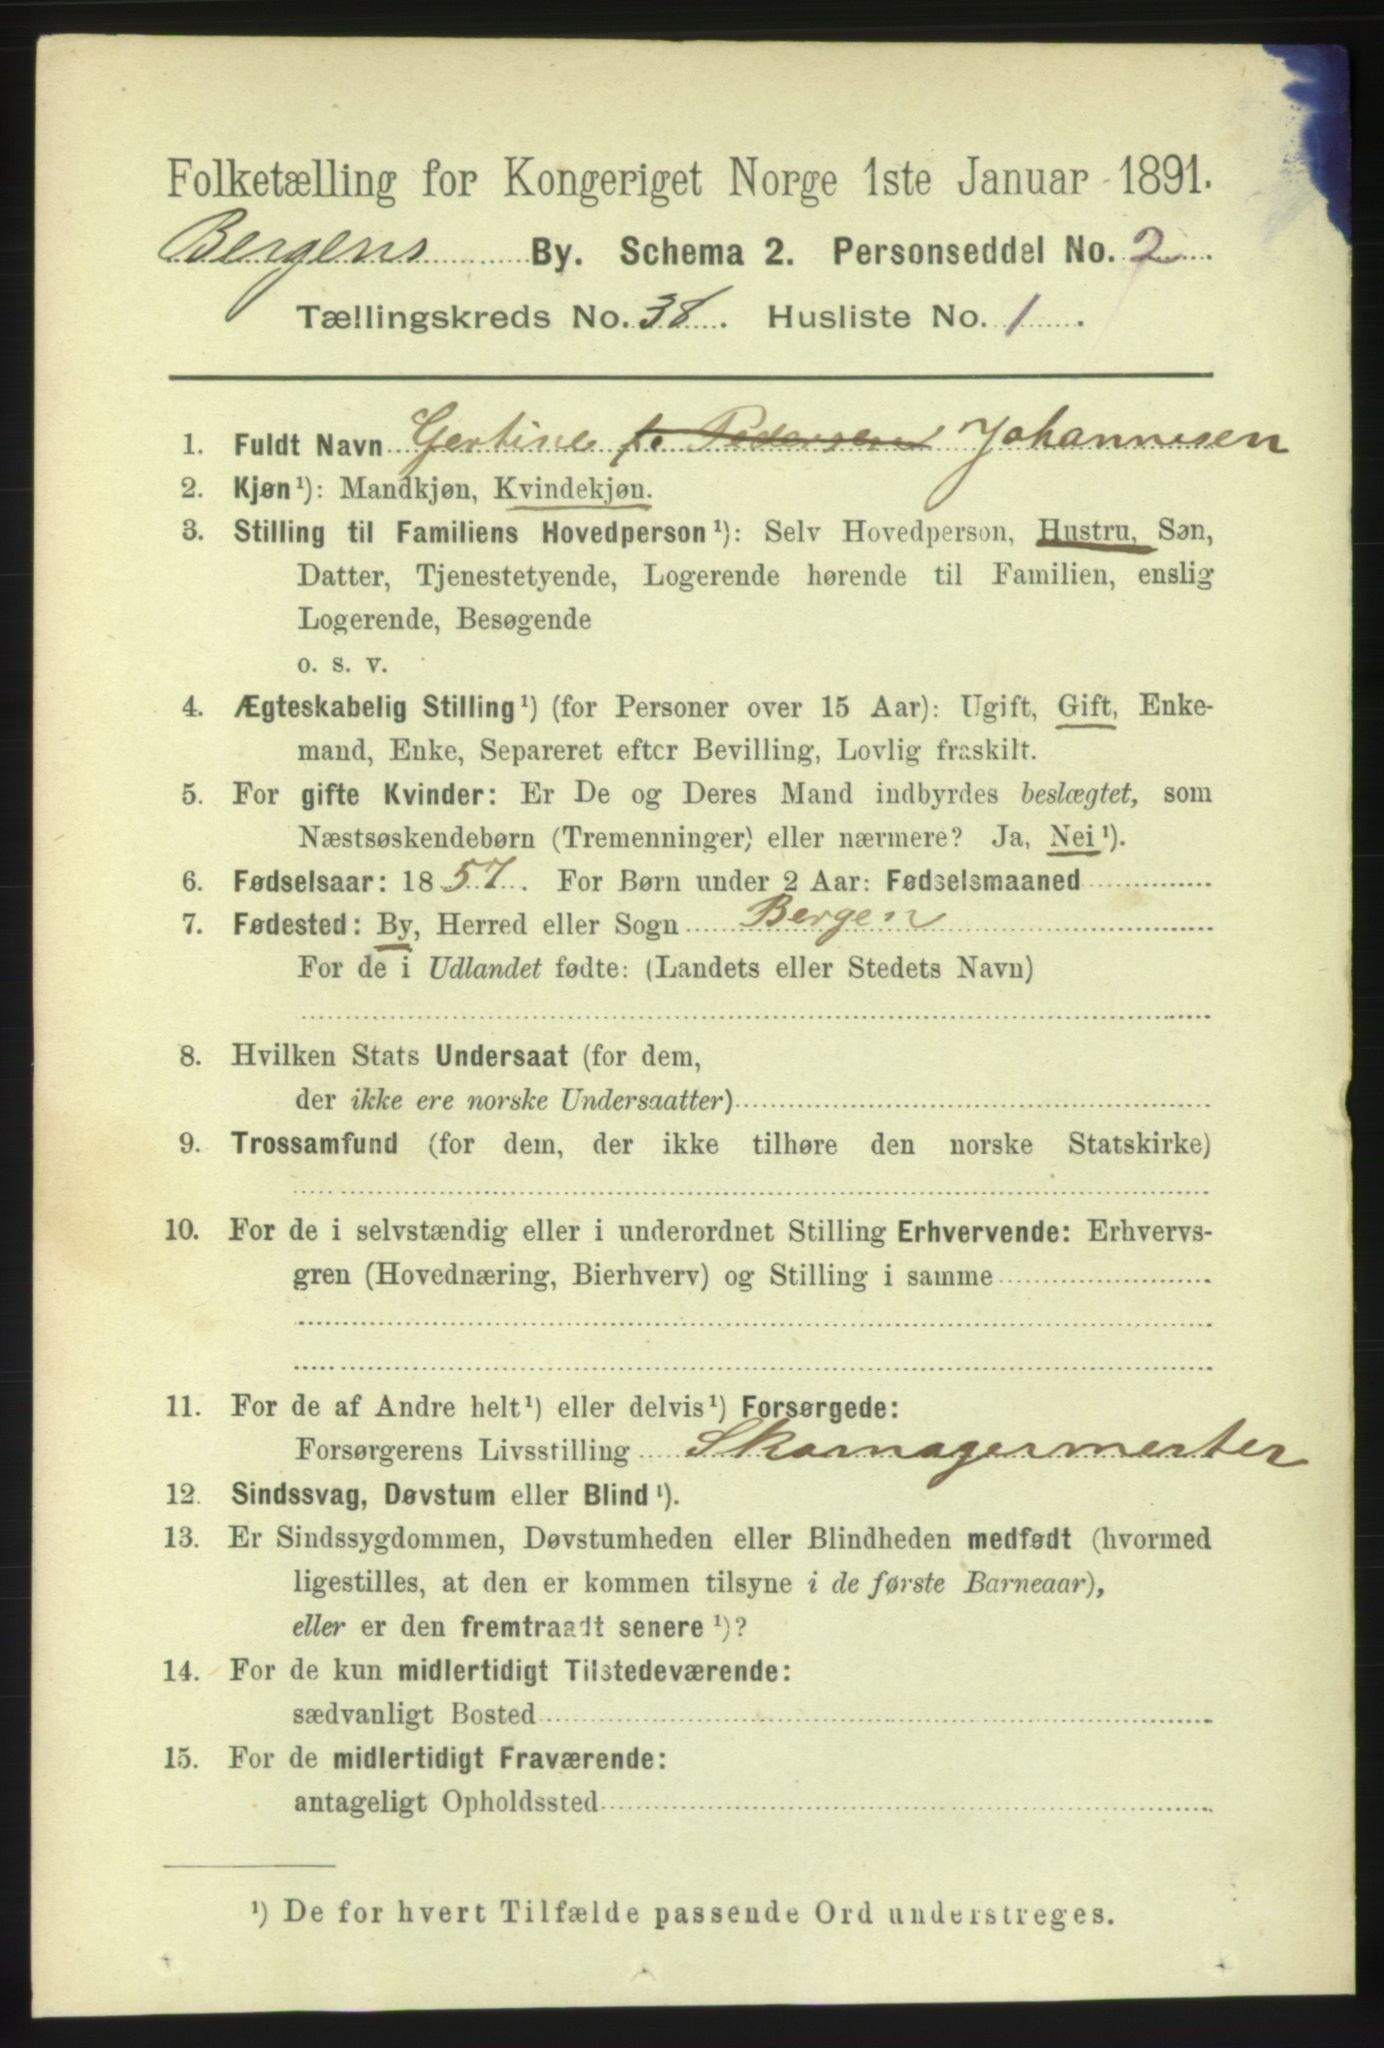 Folketælling for Kongeriget Norge 1ste Januar 1891.
Bergens By. Schema 2. Personseddel No. 2.
Tællingskreds No. 38. Husliste No. 1.
1. Fuldt Navn Gertine f. Pedersen Johannesen
2. Kjøn¹): Mandkjøn, Kvindekjøn.
3. Stilling til Familiens Hovedperson¹): Selv Hovedperson, Hustru, Søn,
Datter, Tjenestetyende, Logerende hørende til Familien, enslig
Logerende, Besøgende
o. s. v.
4. Ægteskabelig Stilling¹) (for Personer over 15 Aar): Ugift, Gift, Enke-
mand, Enke, Separeret efter Bevilling, Lovlig fraskilt.
5. For gifte Kvinder: Er De og Deres Mand indbyrdes beslægtet, som
Næstsøskendebørn (Tremenninger) eller nærmere? Ja, Nei¹).
6. Fødselsaar: 1857. For Børn under 2 Aar: Fødselsmaaned
7. Fødested: By, Herred eller Sogn Bergen
For de i Udlandet fødte: (Landets eller Stedets Navn)
8. Hvilken Stats Undersaat (for dem,
der ikke ere norske Undersaatter)
9. Trossamfund (for dem, der ikke tilhøre den norske Statskirke)
10. For de i selvstændig eller i underordnet Stilling Erhvervende: Erhvervs-
gren (Hovednæring, Bierhverv) og Stilling i samme
11. For de af Andre helt¹) eller delvis¹) Forsørgede:
Forsørgerens Livsstilling Skomagermester
12. Sindssvag, Døvstum eller Blind¹).
13. Er Sindssygdommen, Døvstumheden eller Blindheden medfødt (hvormed
ligestilles, at den er kommen tilsyne i de første Barneaar),
eller er den fremtraadt senere¹)?
14. For de kun midlertidigt Tilstedeværende:
sædvanligt Bosted
15. For de midlertidigt Fraværende:
antageligt Opholdssted
¹) De for hvert Tilfælde passende Ord understreges.